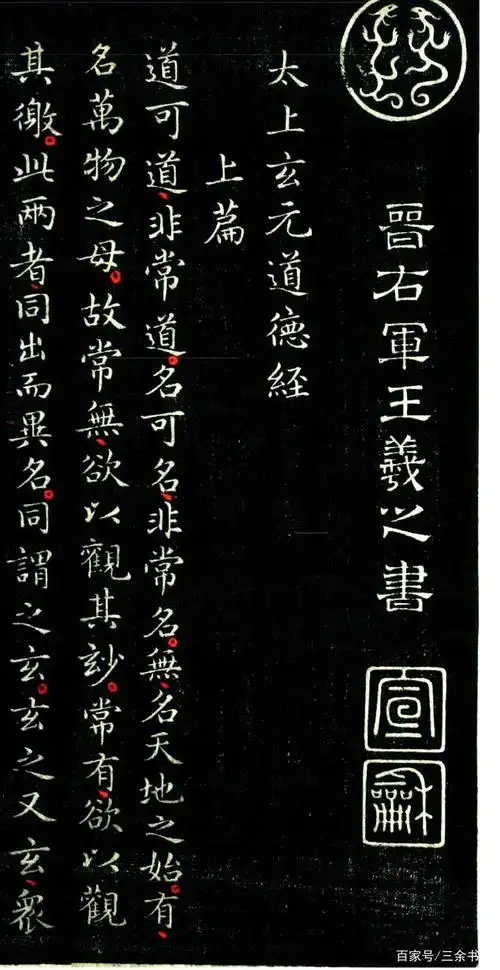 晉右軍王羲之書
宣
龢
太上玄元道德經
上篇
道可道、非常道。名可名、非常名。無、名天地之始。有、
名萬物之母。故常無、欲以觀其玅。常有、欲以觀
其徼。此两者、同出而異名。同謂之玄。玄之又玄、眾
百家号/三余书